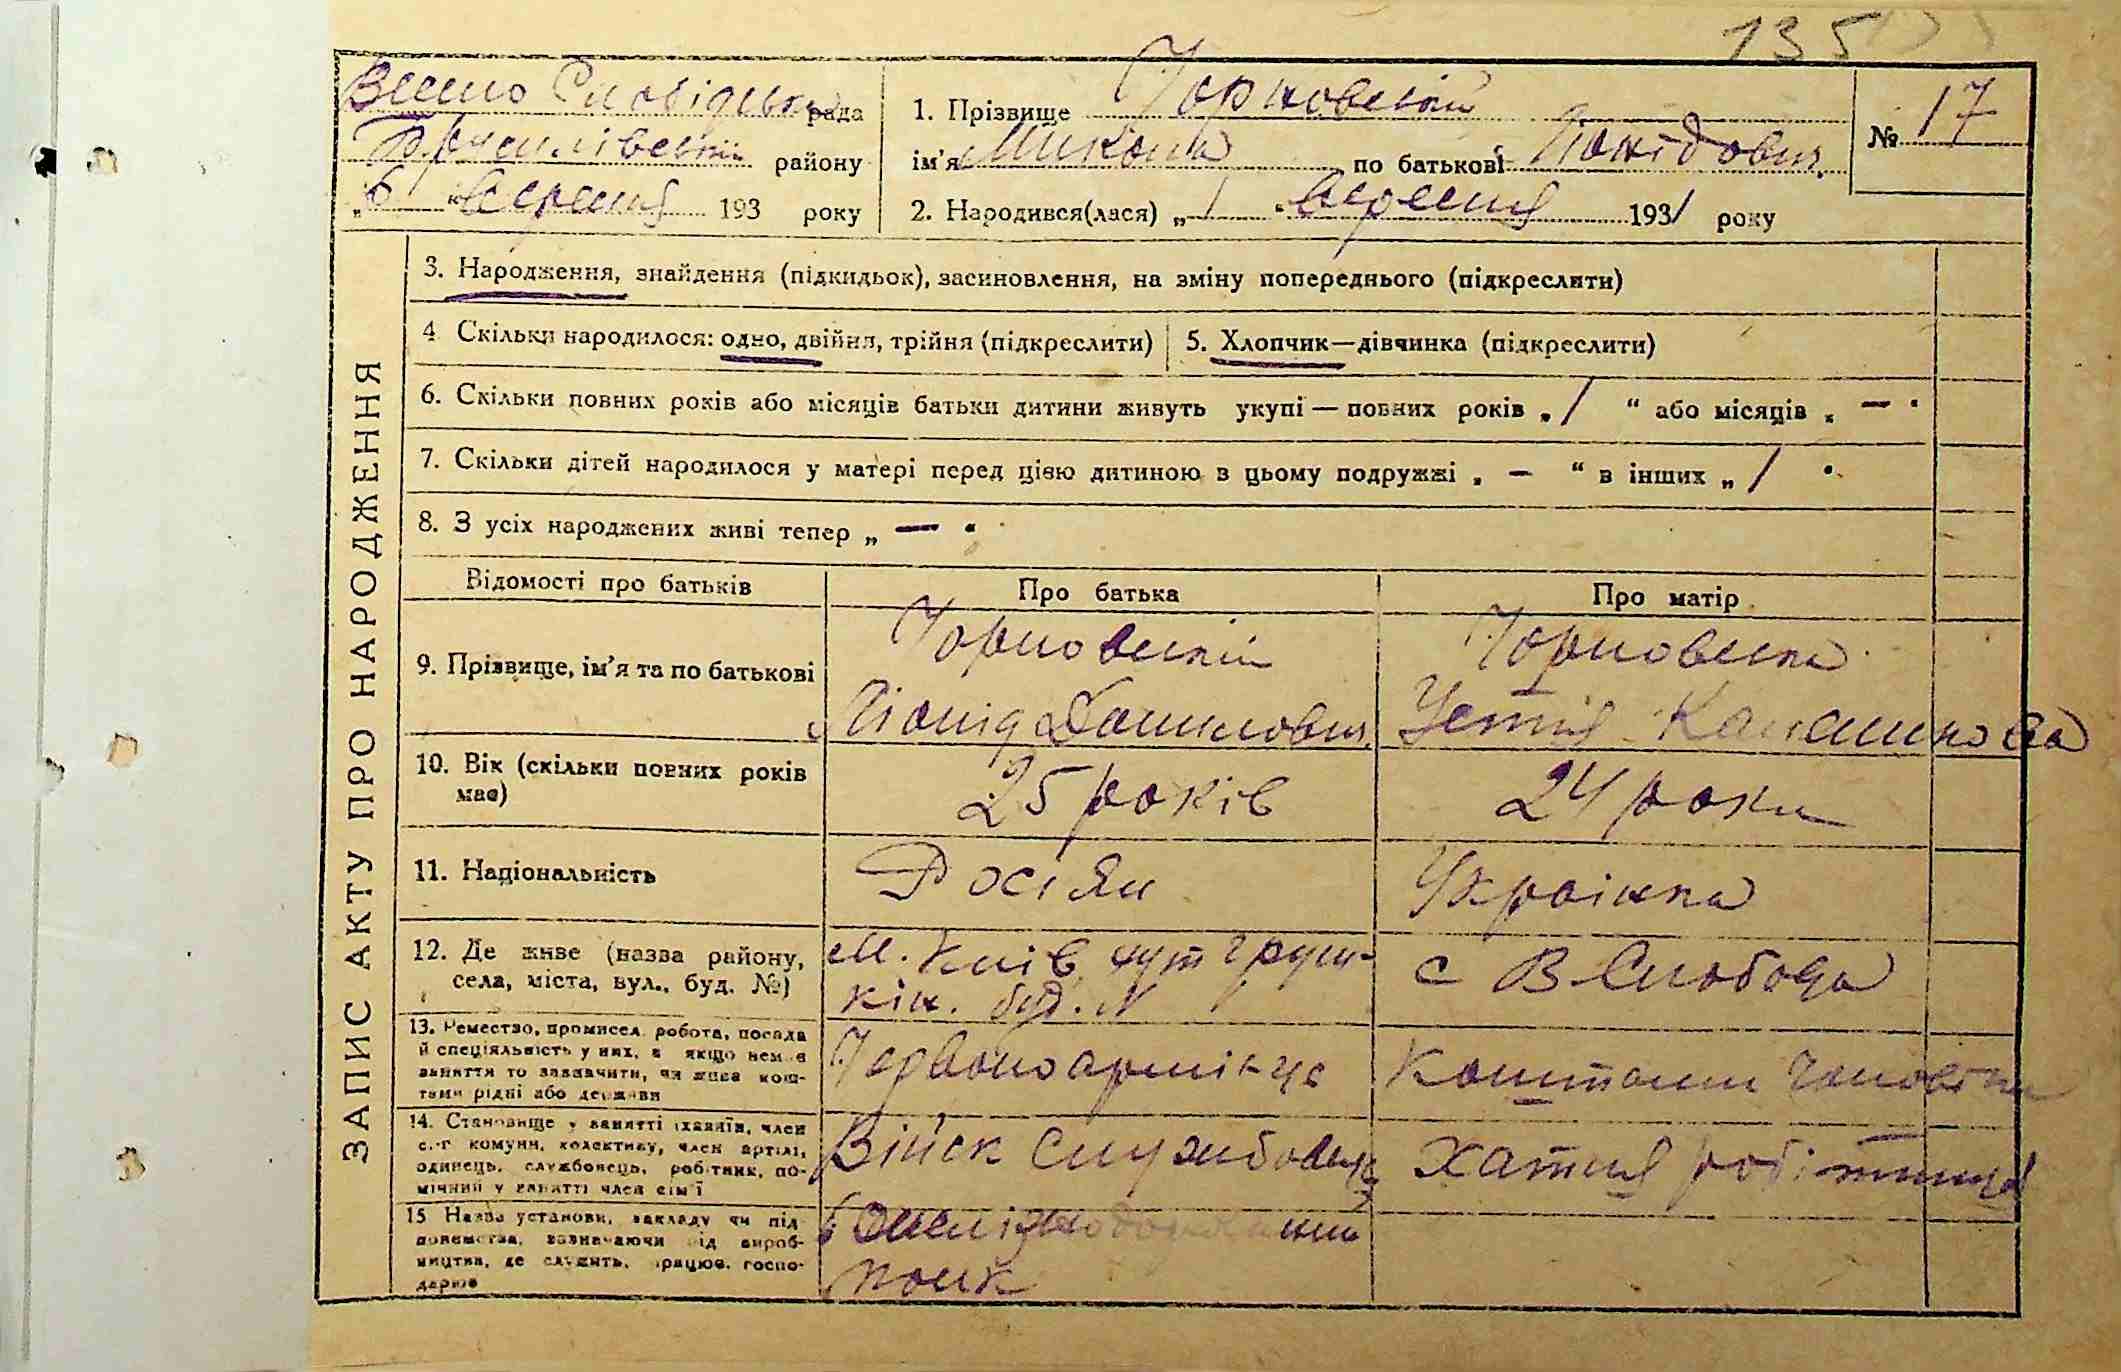 135
Велико Слобідська рада
району
„6" вересня 193 року
1. Прізвище Чорновський
ім'я Микола по батькові Леонідович
2. Народився(лася) „1" вересня 1931 року
№ 17
ЗАПИС АКТУ ПРО НАРОДЖЕННЯ
3. Народження, знайдення (підкидьок), засиновлення, на зміну попереднього (підкреслити)
4 Скільки народилося: одно, двійня, трійня (підкреслити)
5. Хлопчик—дівчинка (підкреслити)
6. Скільки повних років або місяців батьки дитини живуть укупі — повних років „ 1 " або місяців „ — "
7. Скільки дітей народилося у матері перед цією дитиною в цьому подружжі „ — " в інших „ 1 "
8. З усіх народжених живі тепер „ — "
Відомості про батьків
Про батька
Про матір
9. Прізвище, ім'я та по батькові
Чорновський
Леонід Данилович
Чорновська
Устія
10. Вік (скільки повних років
має)
25 років
24 роки
11. Національність
Росіян
Українка
12. Де живе (назва району,
села, міста, вул., буд. №)
м. Київ
буд. №
с В-Слобода
13. Ремество, промисел, робота, посада
й спеціяльність у них, а якщо немає
заняття то зазначити, чи живе кош-
тами рідні або держави
Червоноармієць
Коштами чоловіка
14. Становище у занятті (хазяїн, член
с.-г комуни, колективу, член артілі,
одинець, службовець, робітник, по-
мічний у занятті член сім'ї
Війск службовець
Хатня робітниця
15 Назва установи, закладу чи під-
приємства, зазначаючи рід вироб-
ництва, де служить, працює, госпо-
дарює
полк